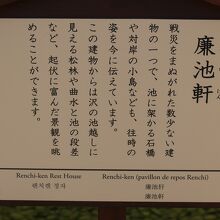 廉池軒
戦災をまぬがれた数少ない建
物の一つで、池に架かる石橋
や対岸の小島なども、往時の
姿を今に伝えています。
この建物からは沢の池越しに
見える松林や曲水と池の段差
など、起伏に富んだ景観を眺
めることができます。
Renchi-ken Rest House
렌치켄 정자
Renchi-ken (pavillon de repos Renchi)
廉池轩
廉池軒